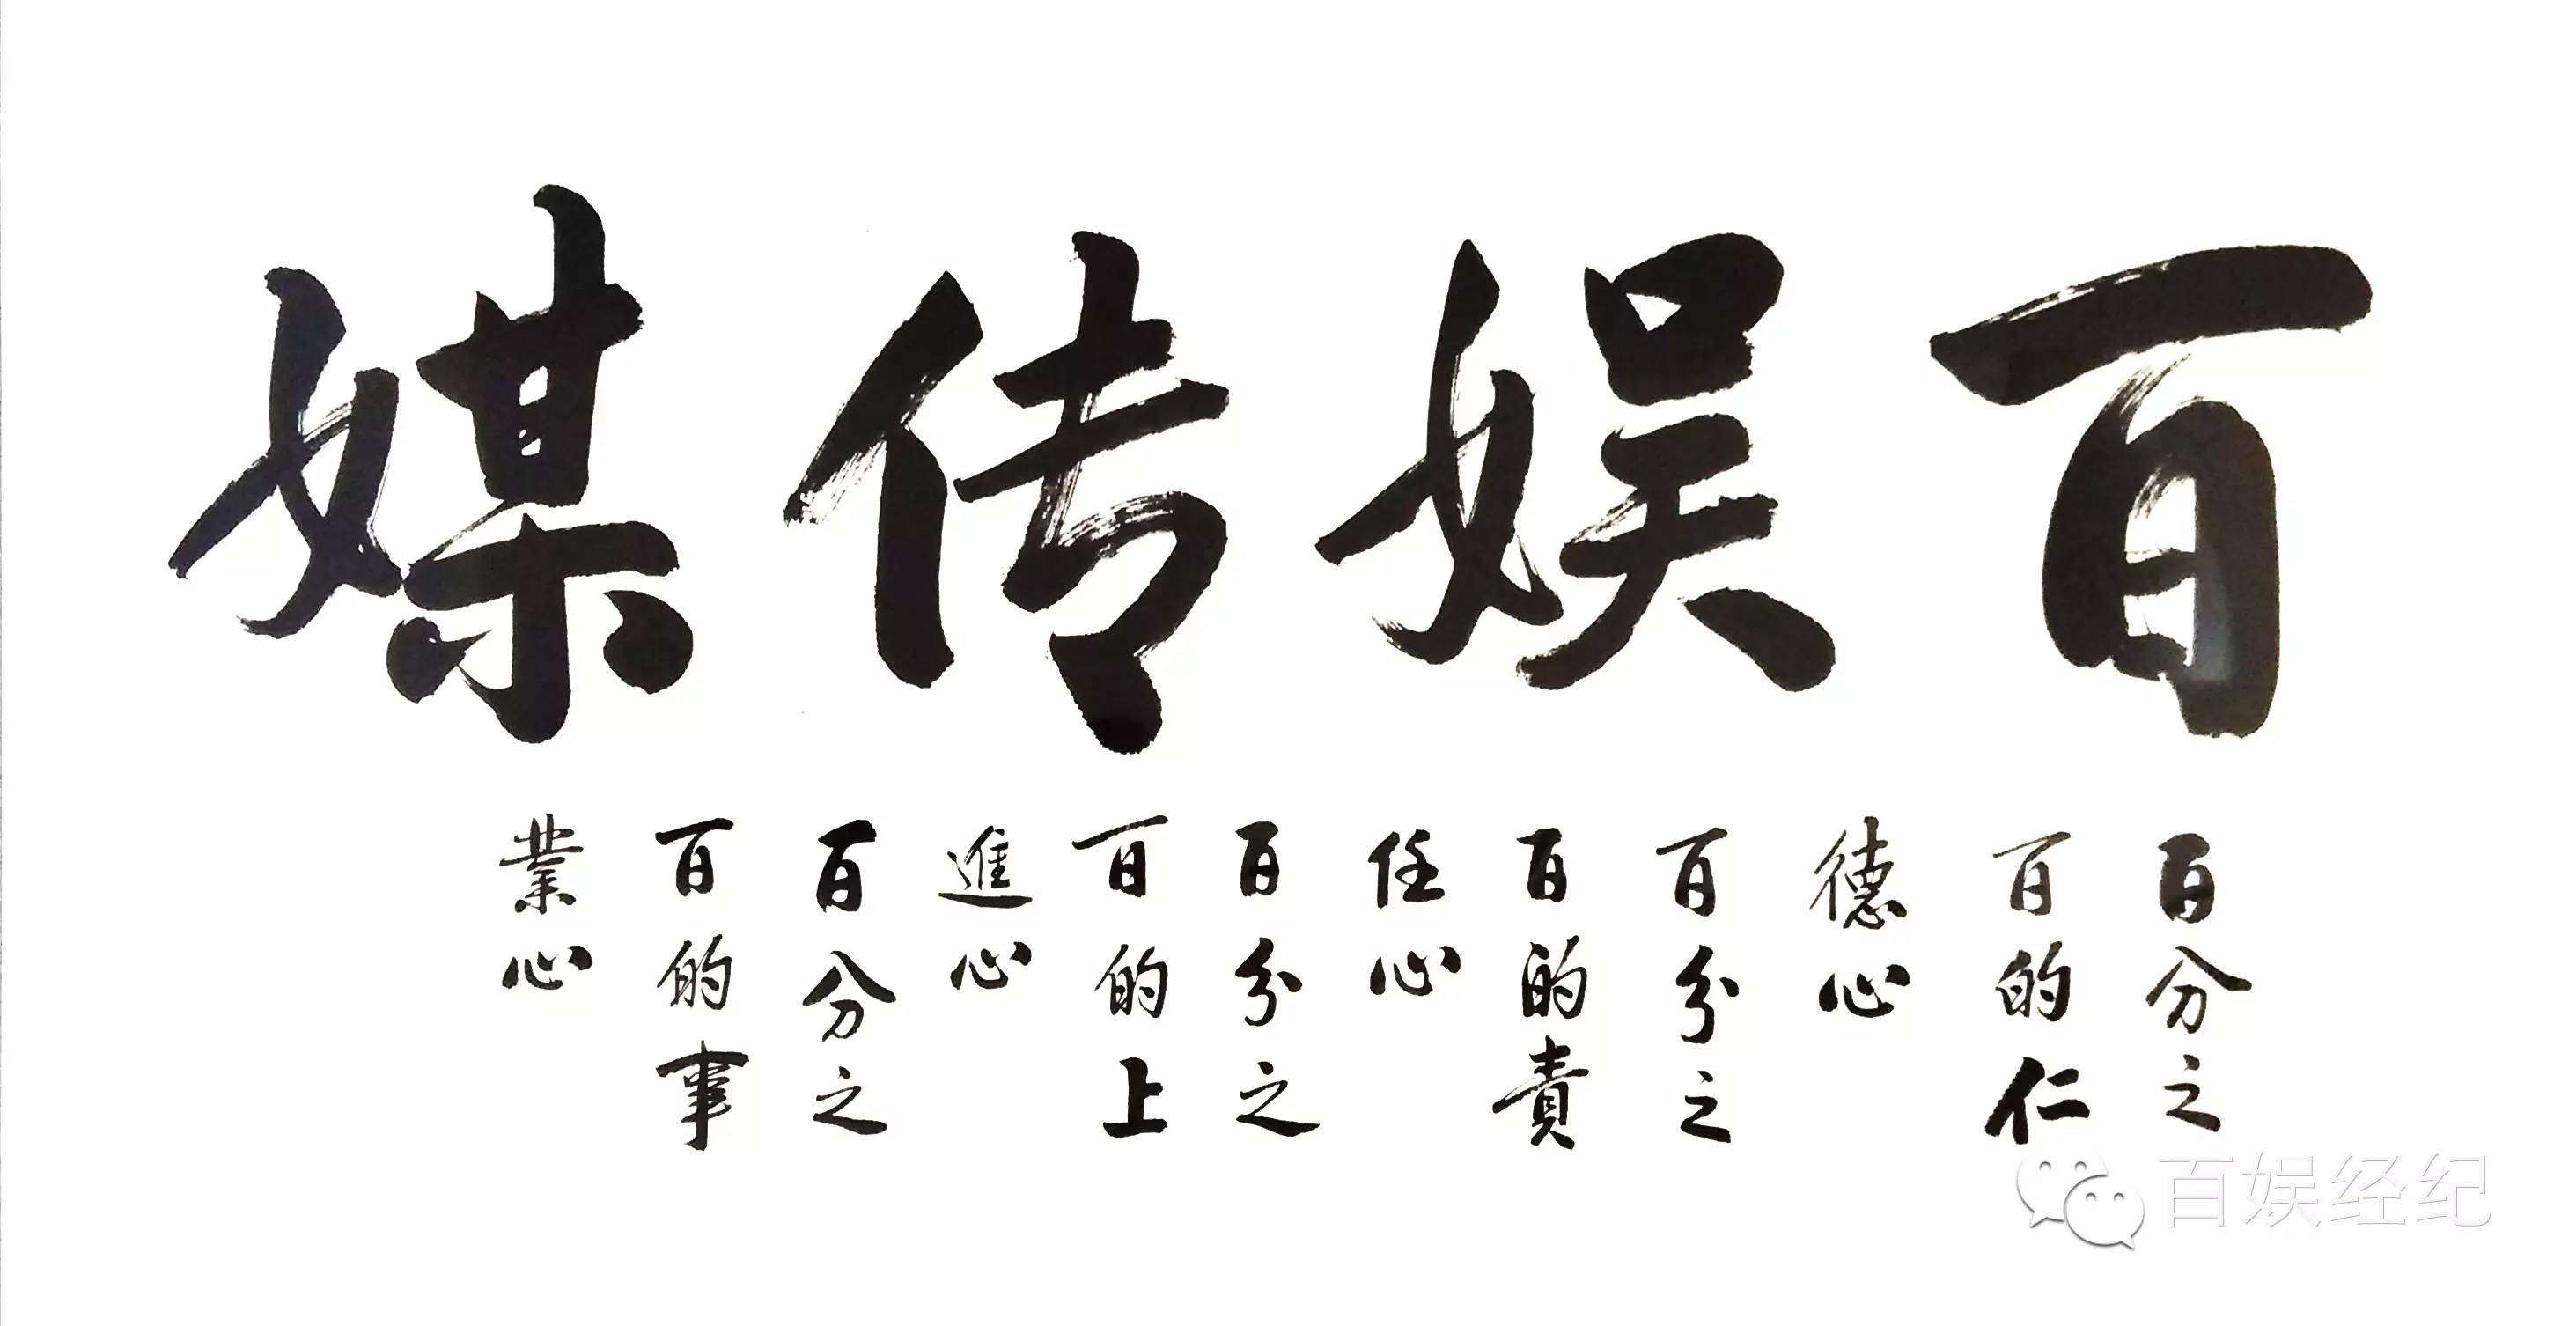 百娱传媒
百分之
百的仁
德心
百分之
百的責
任心
百分之
百的上
進心
百分之
百的事
業心
百娱经纪